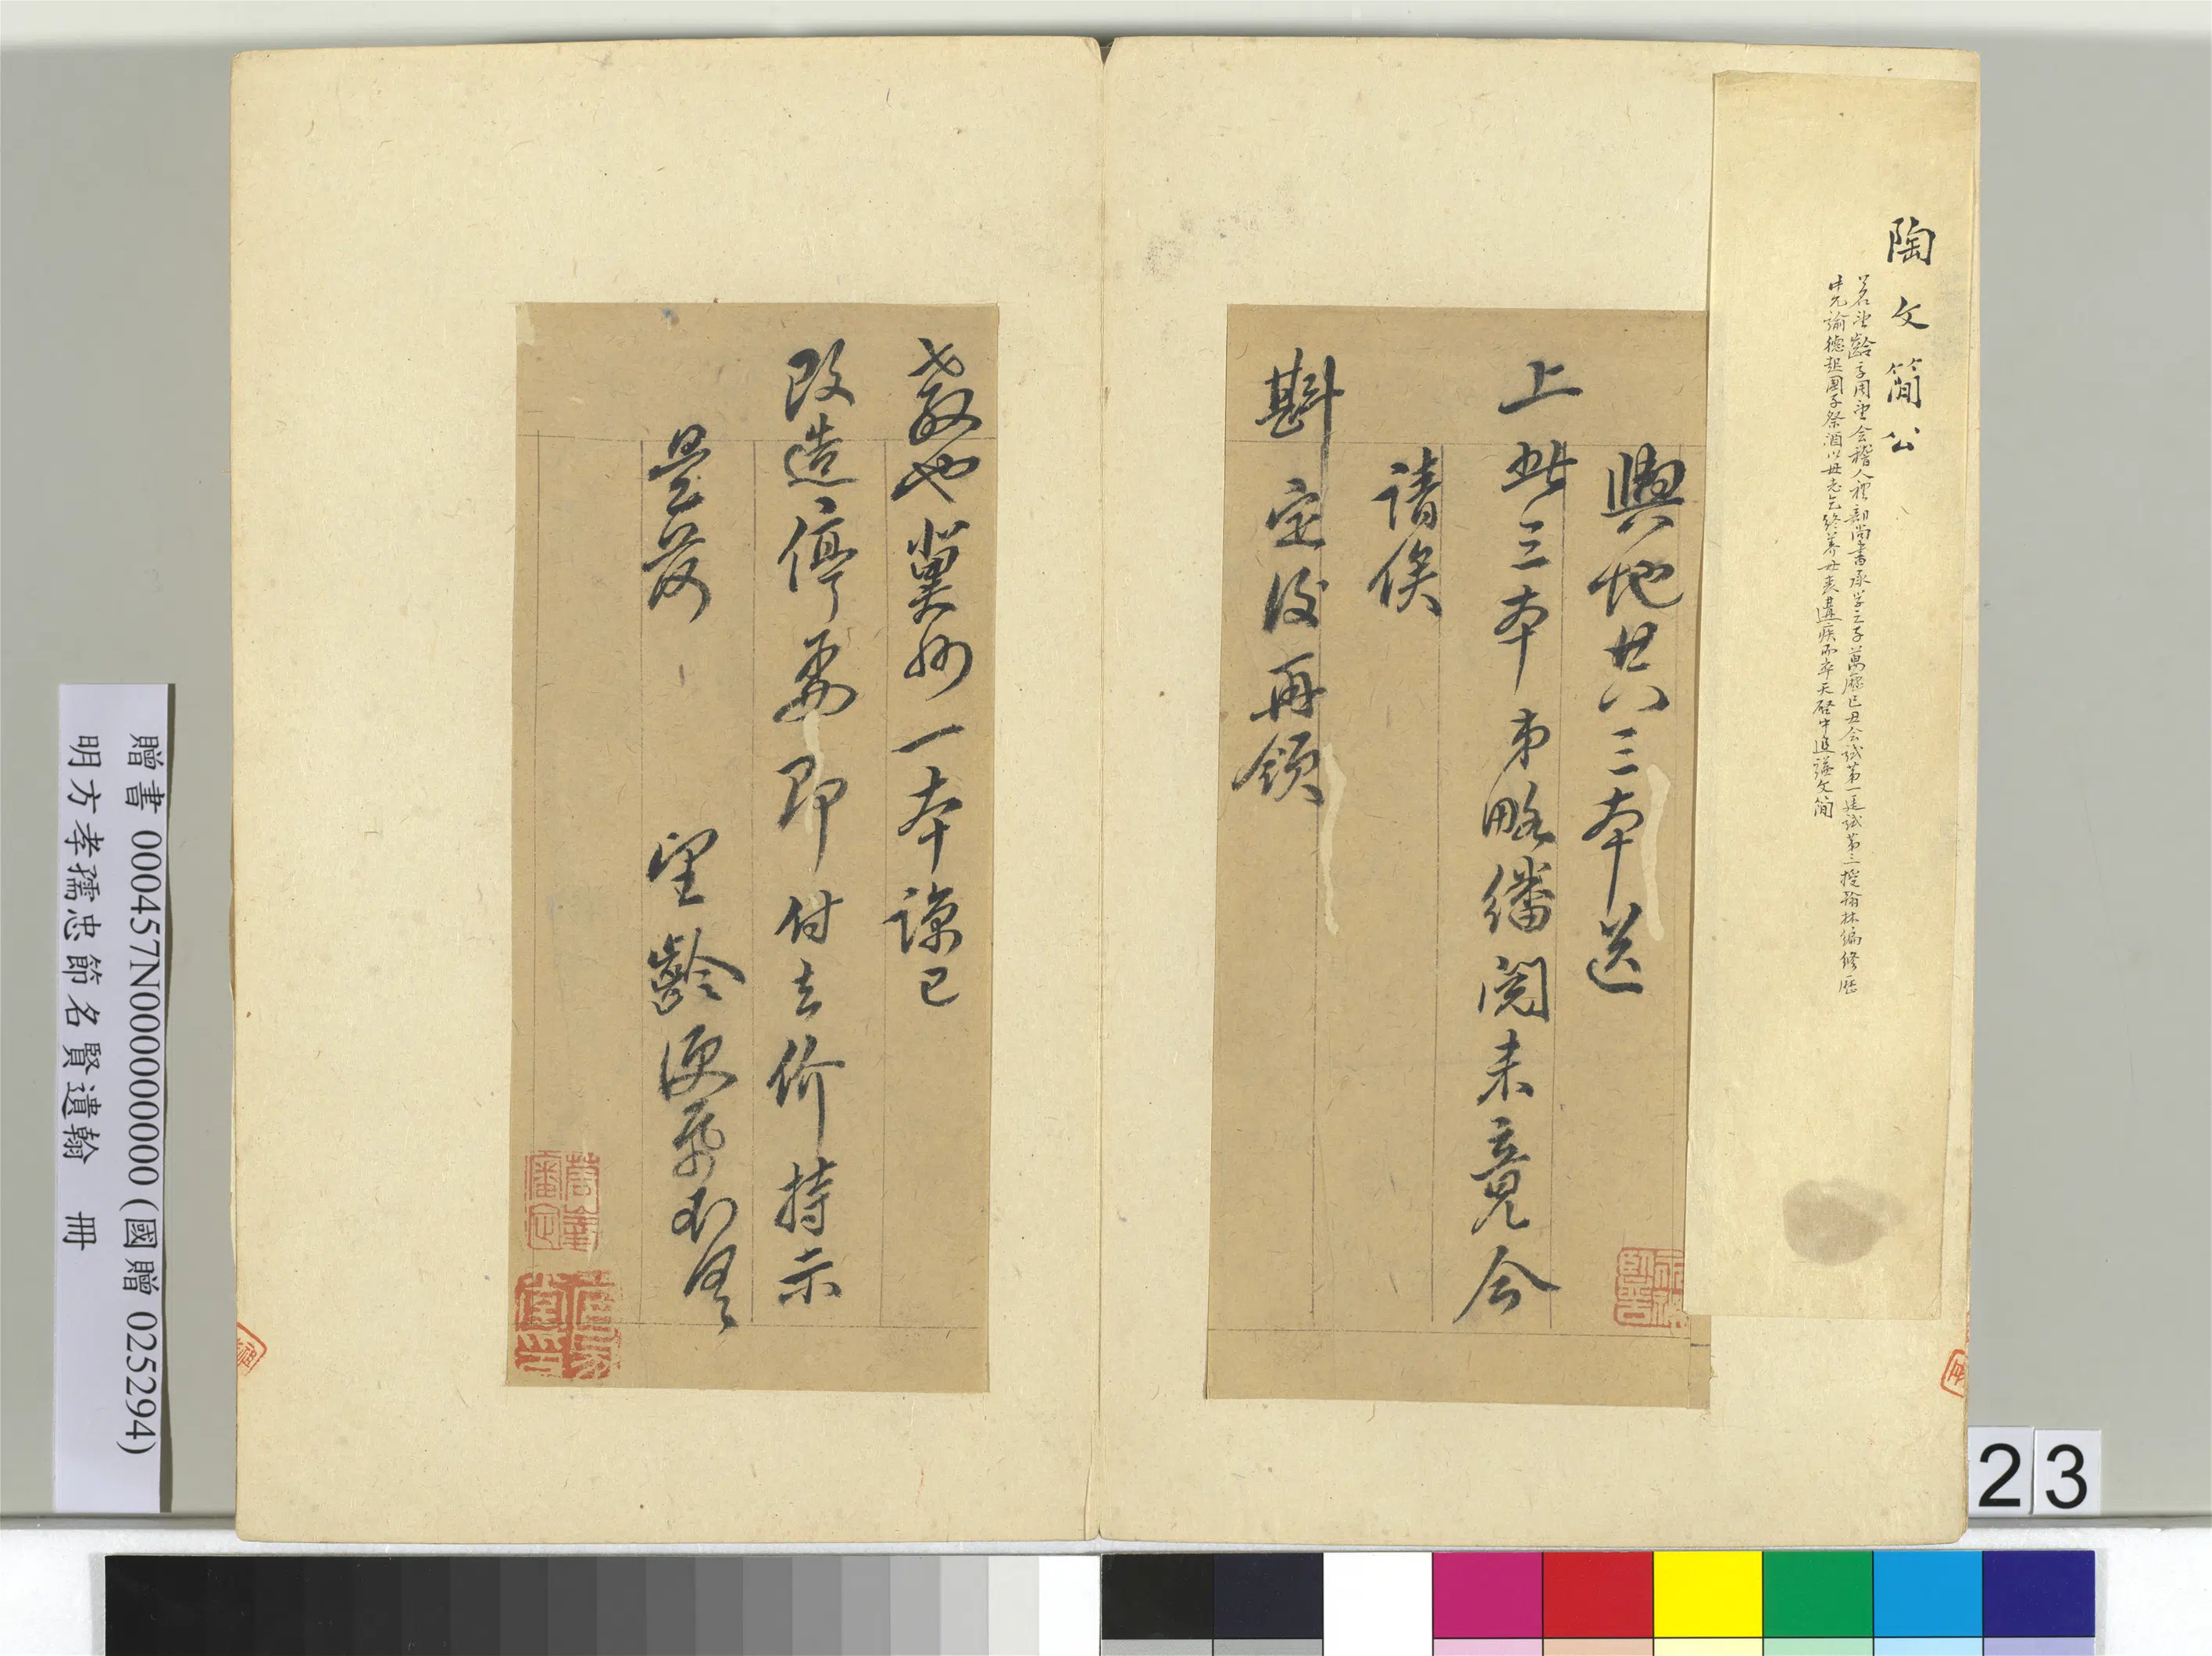 陶文簡公
名望齡字周望会稽人禮部尚書承学之子萬曆己丑会試第一廷試第三授翰林編修歷
中允諭德起國子祭酒以母老乞終養母喪遘疾而卒天啓中追諡文簡
輿地共三本送
上此三本弟略繙閱未竟今
請俟
斟定後再領
教也冀州一本諒已
改造停妥即付去价持示
曇發
望齡便
贈書 000457N000000000 (國贈 025294)
明方孝孺忠節名賢遺翰 冊
23